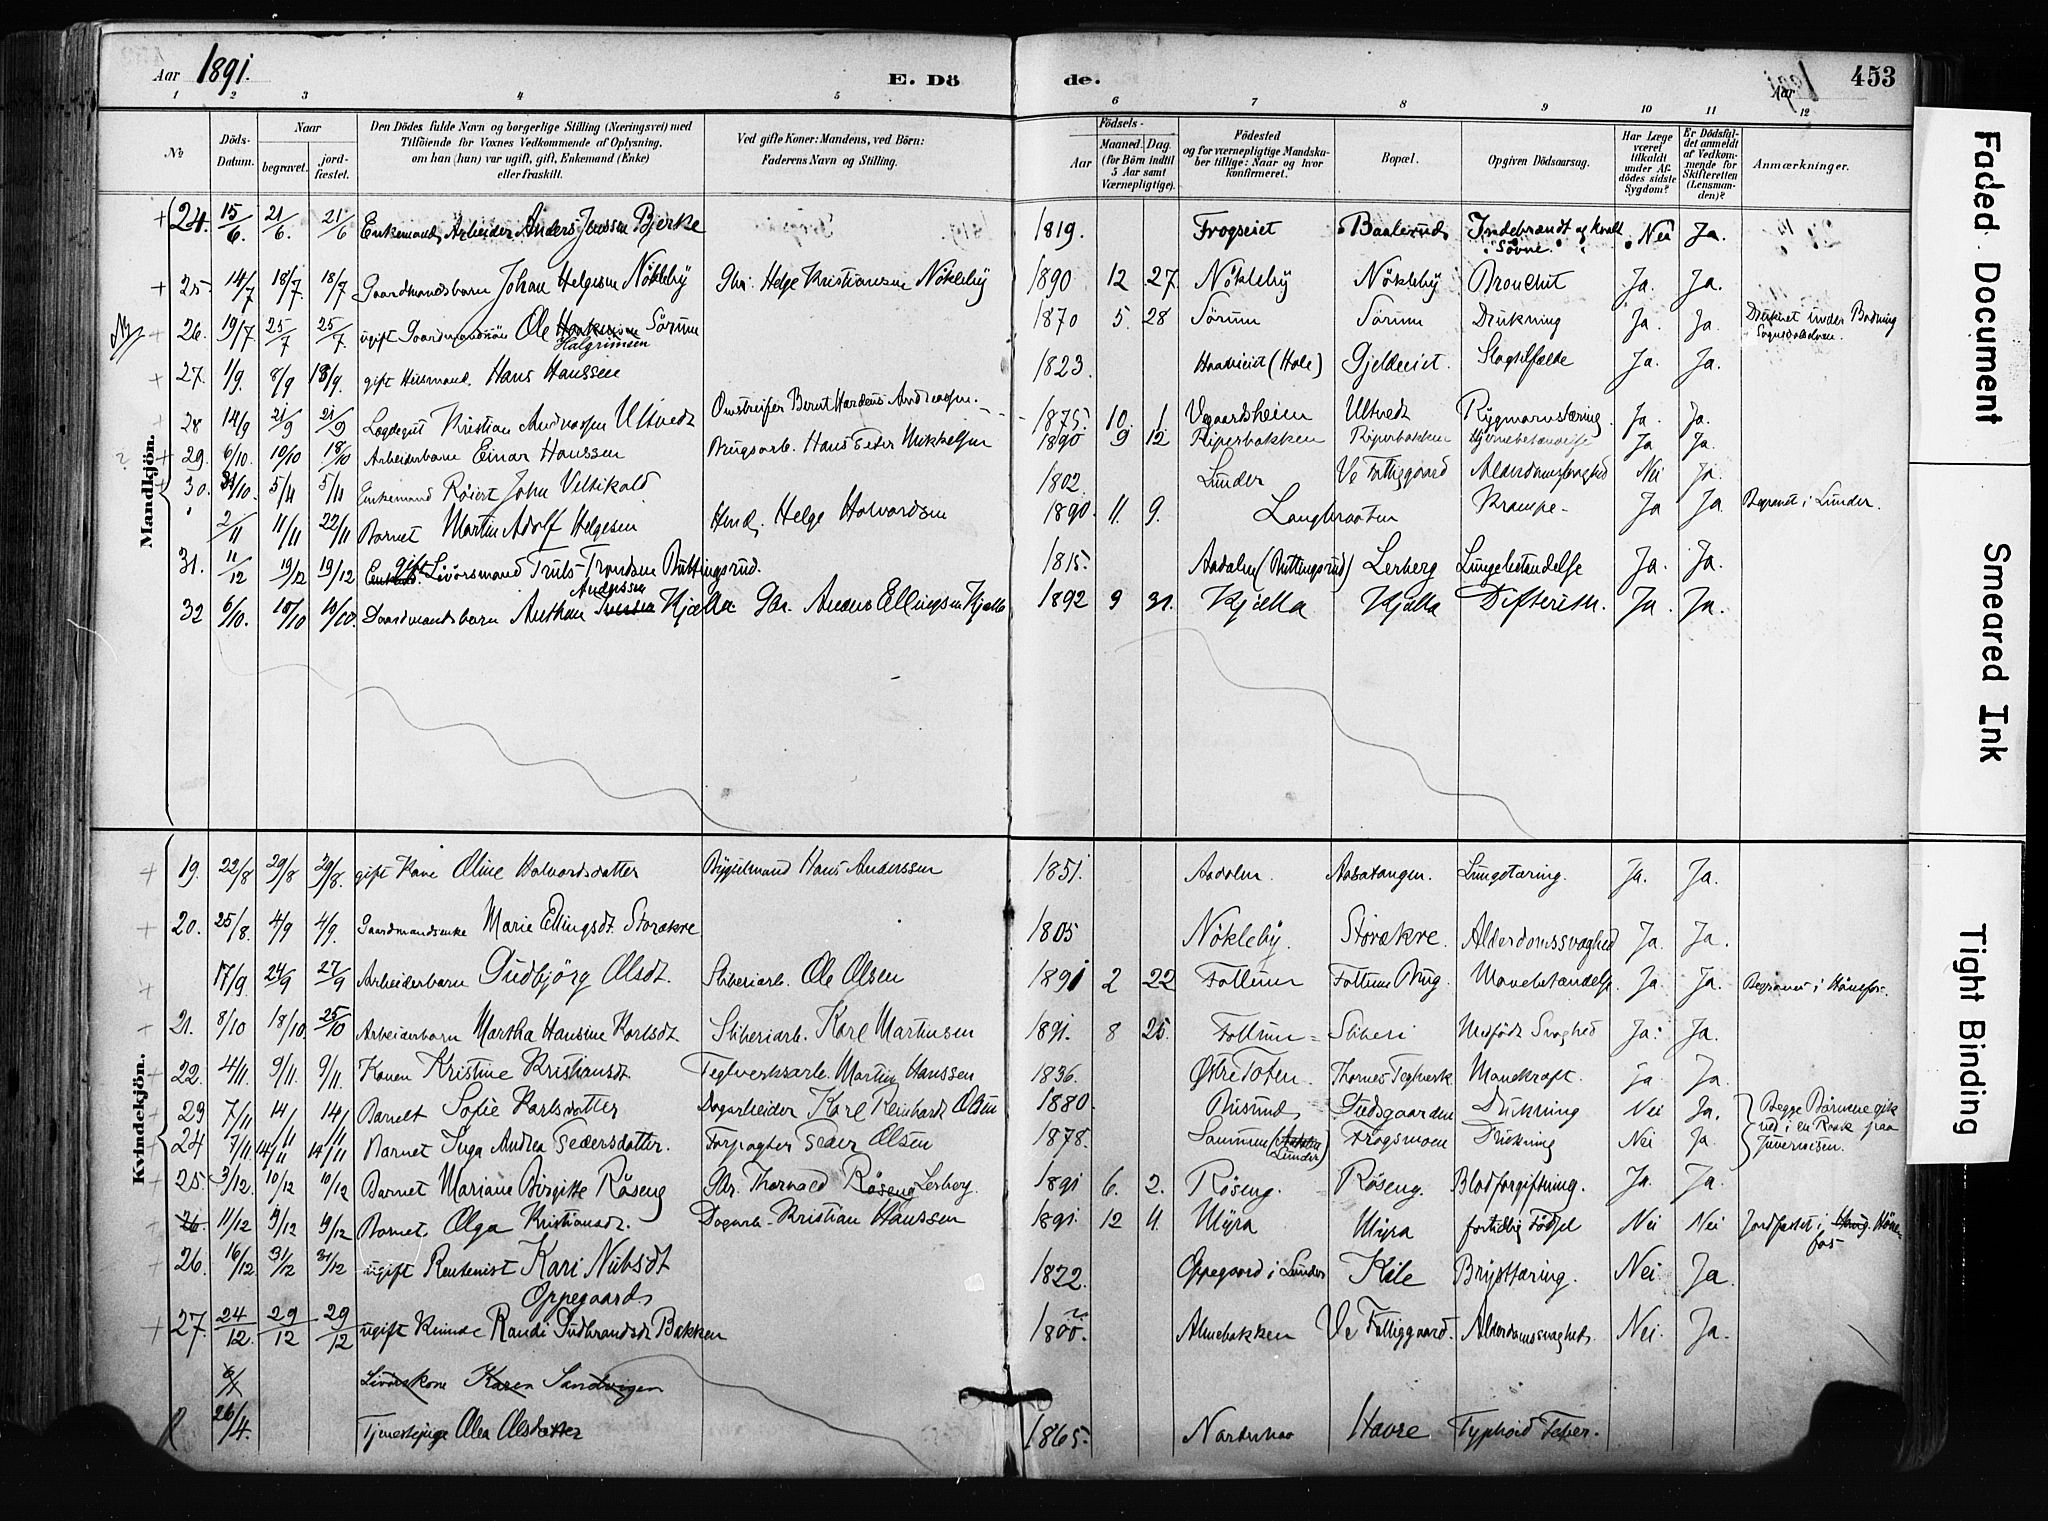 Aar 1891.
E. Döde.
Aar 1891
453
1 2 3 4 5 6 7 8 9 10 11 12
№
Döds-Datum.
Naar begravet. jordfæstet.
Den Dödes fulde Navn og borgerlige Stilling (Næringsvei) med Tilföiende for Voxnes Vedkommende af Oplysning, om han (hun) var ugift, gift, Enkemand (Enke) eller fraskilt.
Ved gifte Koner: Mandens, ved Börn: Faderens Navn og Stilling.
Födsels-
Aar Maaned. Dag. (for Börn indtil 5 Aar samt Værnepligtige).
Födested og for værnepligtige Mandskaber tillige: Naar og hvor konfirmeret.
Bopæl.
Opgiven Dödsaarsag.
Har Læge været tilkaldt under Afdödes sidste Sygdom?
Er Dödsfuldet anmeldt af Vedkommende for Skifteretten (Lensmanden)?
Anmærkninger.
Mandkjön.
24. 15/6. 21/6. 21/6 Enkemand, Arbeider Anders Jenssen Bjerke 1819. Frogseiet Indebrændt og kvalt i Søvne. Nei Ja.
25. 14/7 18/7. 18/7 Gaardmandsbarn Johan Helgesen Nökleby Gbr. Helge Kristiansen Nökleby 1890. 12 27. Nökleby Nökleby Bronchit Ja. Ja.
26. 19/7. 25/7 25/7. ugift Gaardmandssön Ole Halgrimsen Sörum 1870 5. 28 Sörum Sörum Drukning Ja. Ja. Druknet under Badning i Sognedalselven.
27. 1/9. 8/9 18/9. gift Husmand. Hans Hanssen 1823. (Hole) Gjeldeiet. Slagtilfælde Ja. Ja.
28 14/9 21/9 21/9 Lægdegut Kristian Andreassen Ultvedt Omstreifer Bernt Andreassen. 1875. 10. 1. Vegaardsheien Ultvedt Rygmarvstæring. Ja. Ja.
29. 6/10. 10/10 18/10 Arbeiderbarn Einar Hanssen Brugsarb. Hans Peter Mikkelsen 1890 9 12 Riperbakken Riperbakken Hjernebetændelse Ja Ja.
30. 31/10. 5/11 5/11 Enkemand John Veltikold 1802. Lunder Ve Fattiggaard Alderdomssvaghed Nei Ja.
2/11 11/11 22/11 Barnet Martin Adolf Helgesen Hmd. Helge Halvordsen 1890. 11. 9. Langbraaten Krampe- Ja Ja. Begravet i Lunder.
31. 11/12 19/12 19/12 gift Livörsmand Truls Trondsen Buttingsrud. 1815. Aadalen (Buttingsrud) Lerberg Lungebetændelse Ja. Ja.
32 6/10. 10/10 10/10. Gaardmandsbarn Anthon Anderssen Kjælla Gbr. Anders Ellingsen Kjælla 1892 9 31. Kjælla Kjælla Difterith. Ja. Ja.
Kvindekjön.
19. 22/8 29/8 29/8. gift Kone Oline Halvordsdatter Bygselmand Hans Anderssen 1851. Aadalen. Aasatangen. Lungetæring. Ja. Ja.
20. 25/8. 4/9 4/9. Gaardmandsenke Marie Ellingsdt. Storækre 1805 Nökleby. Storækre. Alderdomssvaghed Ja. Ja.
17/9. 24/9 27/9 Arbeiderbarn Gudbjörg Olsdt Sliberiarb. Ole Olsen 1891 2 22 Follum Follum Brug. Mavebetændelse Ja. Ja. Begravet i Hönefos.
21. 8/10 18/10. 25/10 Arbeiderbarn Martha Hansine Karlsdt Sliberiarb. Karl Martinsen 1891. 8 25. Follum- Sliberi Medfödt Svaghed Ja. Ja.
22. 4/11. 9/11. 9/11. Konen Kristine Kristiansdt. Teglverksarb. Martin Hanssen 1836. Østre Toten. Thornes Teglverk Mavekræft. Ja. Ja.
23 7/11 14/11 14/11 Barnet Sofie Karlsdatter Dagarbeider Karl Reinhardt Olsen 1880. Busund Gudsgaarden Drukning Nei Ja. Begge Börnene gik ned i en Raak paa Juvernsöen.
24 7/11 14/11 14/11 Barnet Inga Andrea Pedersdatter. Forpagter Peder Olsen 1878. (Lunder) Frogsmoen Drukning Nei Ja
25. 3/12. 10/12 10/12 Barnet Mariane Birgitte Röseng Gbr. Thorvald Röseng Lerberg. 1891 6. 2. Röseng. Röseng. Blodforgiftning. Ja. Ja.
26. 11/12 9/12 9/12 Barnet Olga Kristiansdt. Dagarb. Kristian Hanssen 1891. 12 4. Myra Myra fortidlig Födsel Nei Nei Jordfæstet i Hönefos
26. 16/12. 31/12 31/12 ugift Rentenist Kari Nubsdt Oppegaard 1822. Oppegaard i Lunder Kile Brysttæring. Nei. Ja.
27. 24/12. 29/12 29/12 ugift Kvinde Randi Gudbrandsdt Bakken 1800. Almebakken Ve Fattiggaard. Alderdomssvaghed. Nei. Ja.
Livörskone Karen Sandvigen
26/4. Tjenestepige Olea Olsdatter 1865. Norderhov Havre Typhoid Feber.
Faded Document
Smeared Ink
Tight Binding